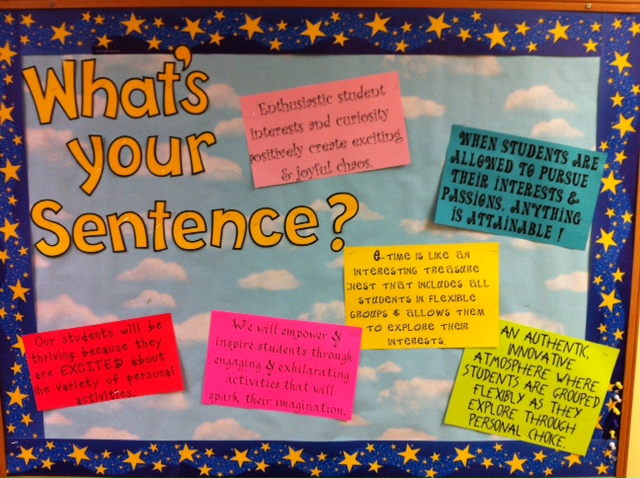 What's
your
Sentence?
Enthusiastic student
interests and curiosity
positively create exciting
& joyful chaos.
WHEN STUDENTS ARE
ALLOWED TO PURSUE
THEIR INTERESTS &
PASSIONS, ANYTHING
IS ATTAINABLE!
E-TIME IS LIKE AN
INTERESTING TREASURE
CHEST THAT INCLUDES ALL
STUDENTS IN FLEXIBLE
GROUPS & ALLOWS THEM
TO EXPLORE THEIR
INTERESTS.
Our students will be
thriving because they
are EXCITED about
the variety of personal
activities.
We will empower &
inspire students through
engaging & exhilarating
activities that will
spark their imagination.
AN AUTHENTIC,
INNOVATIVE
ATMOSPHERE WHERE
STUDENTS ARE GROUPED
FLEXIBLY AS THEY
EXPLORE THROUGH
PERSONAL CHOICE.